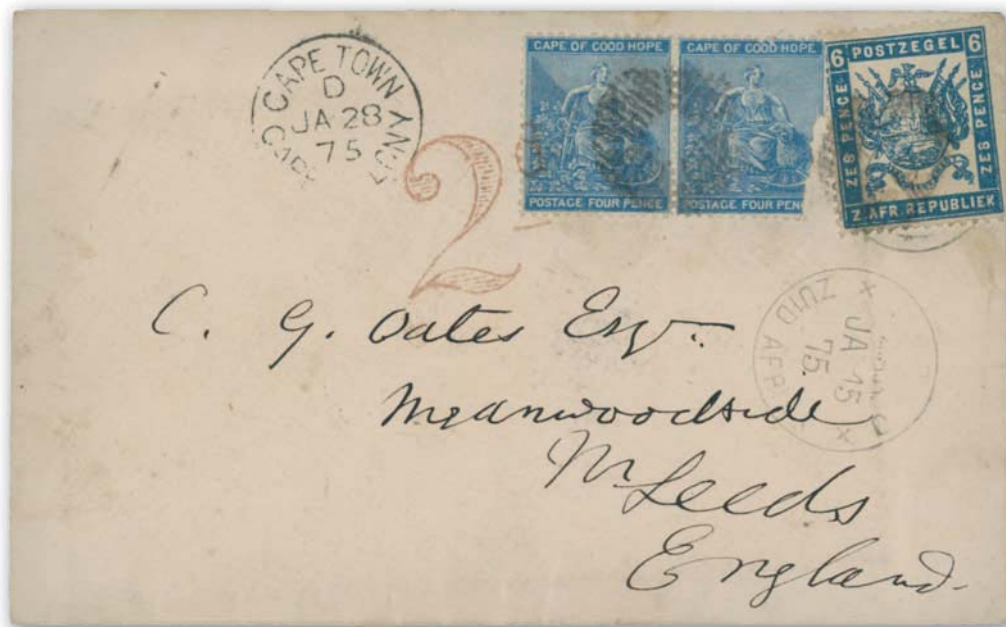 CAPE TOWN
D
JA 28
75
CAPE OF GOOD HOPE
POSTAGE FOUR PENCE
CAPE OF GOOD HOPE
POSTAGE FOUR PENC
6 POSTZEGEL 6
ZES PENCE
ZES PENCE
Z. AFR. REPUBLIEK
2
JA 15
75
ZUID AFR
C. G. Oates Esqr.
Meanwoodside
Nr Leeds
England.